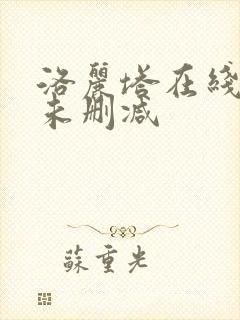 洛麗塔在綫
未删减
蘇重光